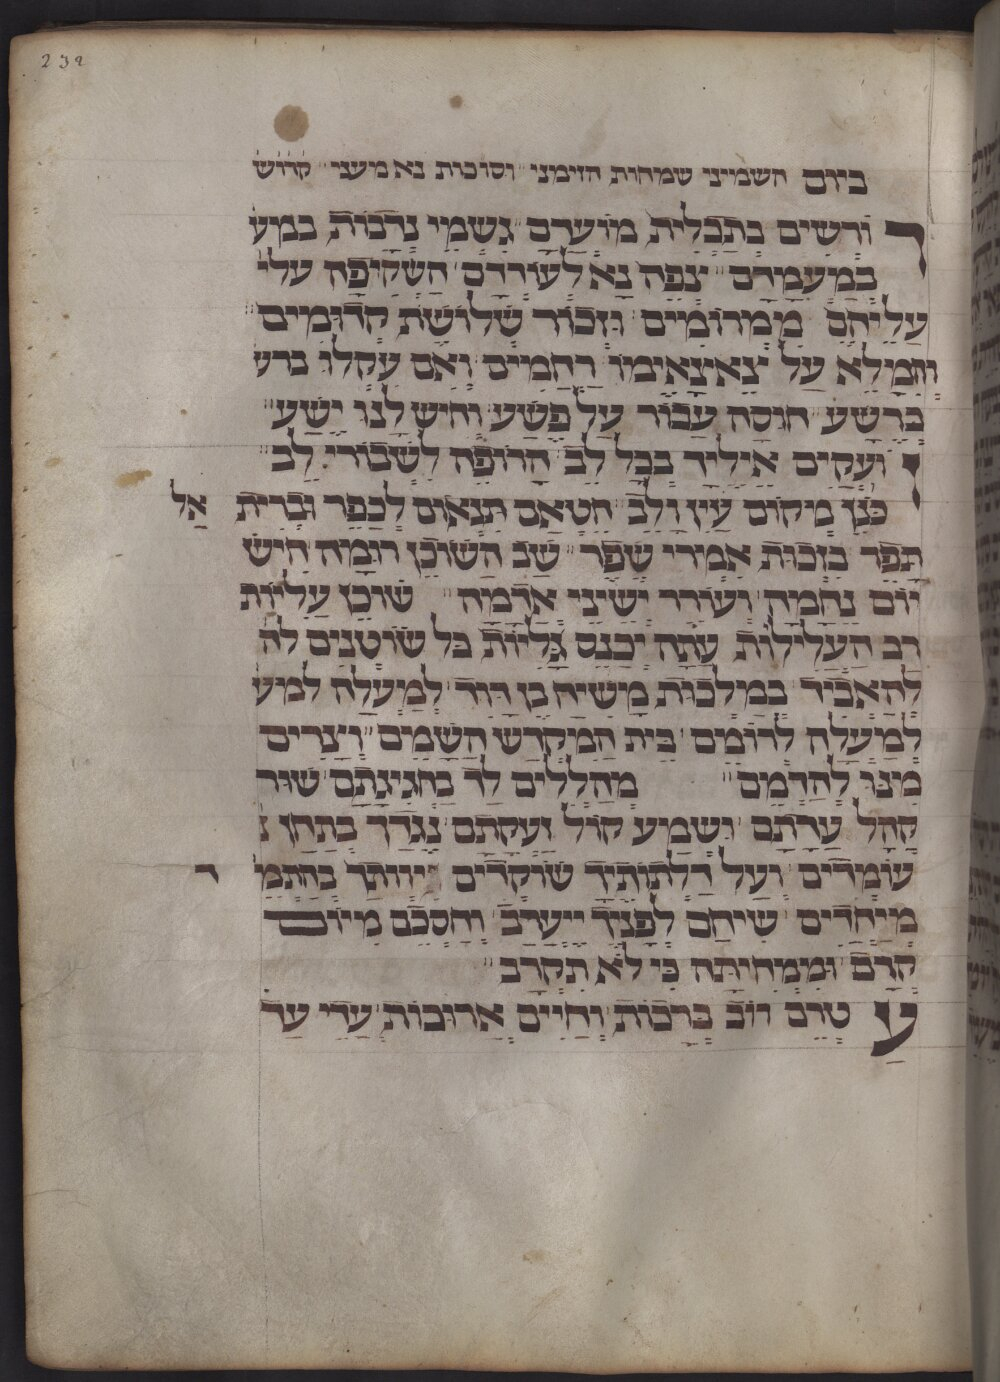 232
ביום השמיני שמחות הזימני וסוכות נא מעני קדוש
דורשים בתכלית מועדם גשמי נדבות במע
במעמדם יצפה נא לעודדם השקיפה עלי
עליהם ממרומים וזכור שלושת קדומים
ותמלא על צאצאימו רחמים ואם עקלו ברש
ברשע חוסה עבור על פשע וחיש לנו ישע
ועקים אליך בכל לב הרופה לשבורי לב
כנן מקום עין ולב חטאם תנאום לכפר וברית אל
תפר בזכות אמרי שפר שב השוכן רומה חיש
יום נחמה ועורר ישיני אדמה שוכן עליות
רב העלילות עתה יכנס גליות כל שוטנים לה
להאביד במלכות משיח בן דויד למעלה למע
למעלה לרומם בית המקדש השמם וצרים
מינו להדמם מהללים לך בחגיגתם שור
קהל עדתם ושמע קול ועקתם נגדך בתחן
שומרים ועל דלתותיך שוקדים יוותך בהתמ ד
מיחדים שיחם לפניך ייערב וחסכם מיום
קרב וממחיתה כי לא תקרב
עטרם רוב ברכות וחיים ארוכות עדי עד